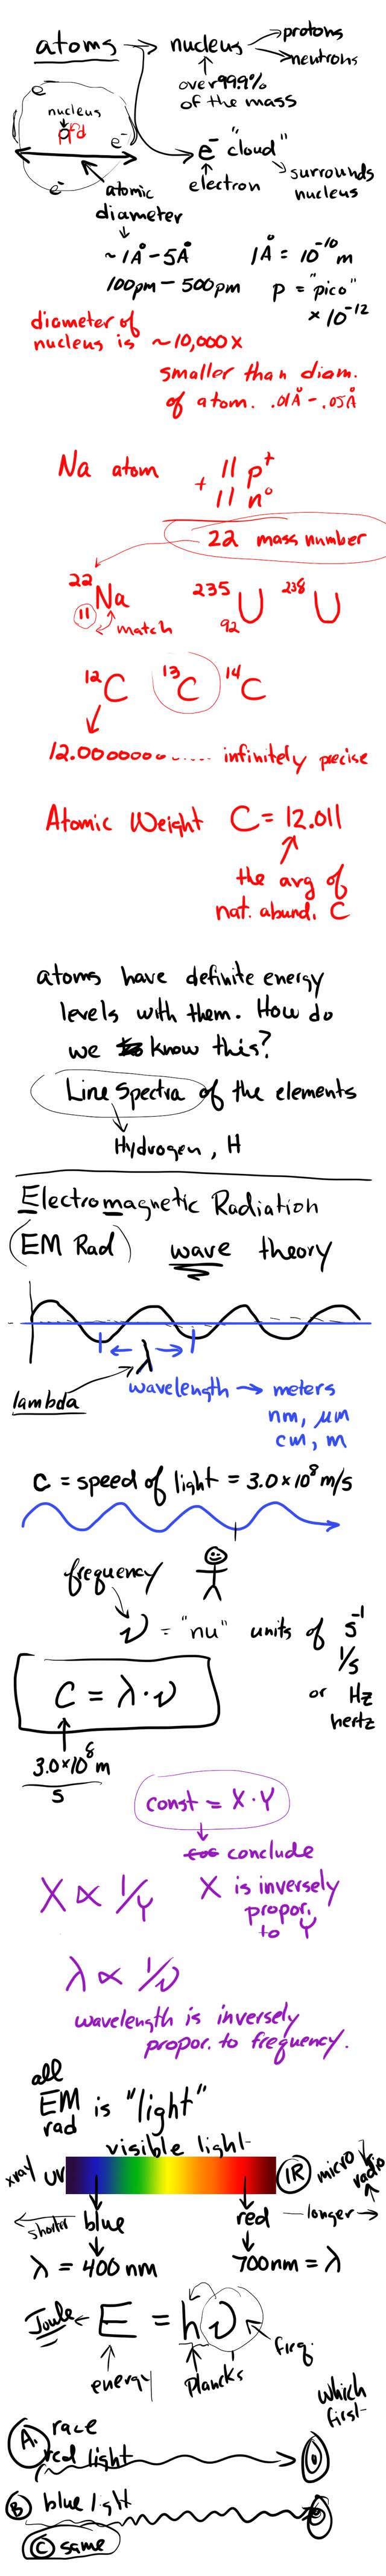 atoms → nucleus → protons
→ neutrons
over 99.9%
of the mass
e⁻
nucleus
e⁻
e⁻
e⁻ "cloud"
electron
surrounds
nucleus
atomic
diameter
~ 1Å - 5Å
1Å = 10⁻¹⁰ m
100pm - 500pm
p = "pico"
× 10⁻¹²
diameter of
nucleus is ~10,000 x
smaller than diam.
of atom. .01Å - .05Å
Na atom
11 p⁺
+ 11 n⁰
22 mass number
²²₁₁Na
match
²³⁵₉₂U ²³⁸U
¹²C ¹³C ¹⁴C
12.0000000...... infinitely precise
Atomic Weight C = 12.011
the avg of
nat. abund. C
atoms have definite energy
levels with them. How do
we know this?
Line Spectra of the elements
Hydrogen, H
Electromagnetic Radiation
(EM Rad) wave theory
← λ →
lambda
wavelength → meters
nm, μm
cm, m
C = speed of light = 3.0×10⁸ m/s
frequency
ν = "nu" units of s⁻¹
1/s
or Hz
hertz
C = λ·ν
3.0×10⁸ m
s
const = X·Y
conclude
X ∝ 1/Y
X is inversely
propor.
to Y
λ ∝ 1/ν
wavelength is inversely
propor. to frequency.
all
EM
rad is "light"
visible light
xray UV IR micro radio
shorter blue red longer →
λ = 400 nm 700nm = λ
Joule ← E = hν
energy
Plancks
freq.
which
first
A. race
red light
B blue light
C same